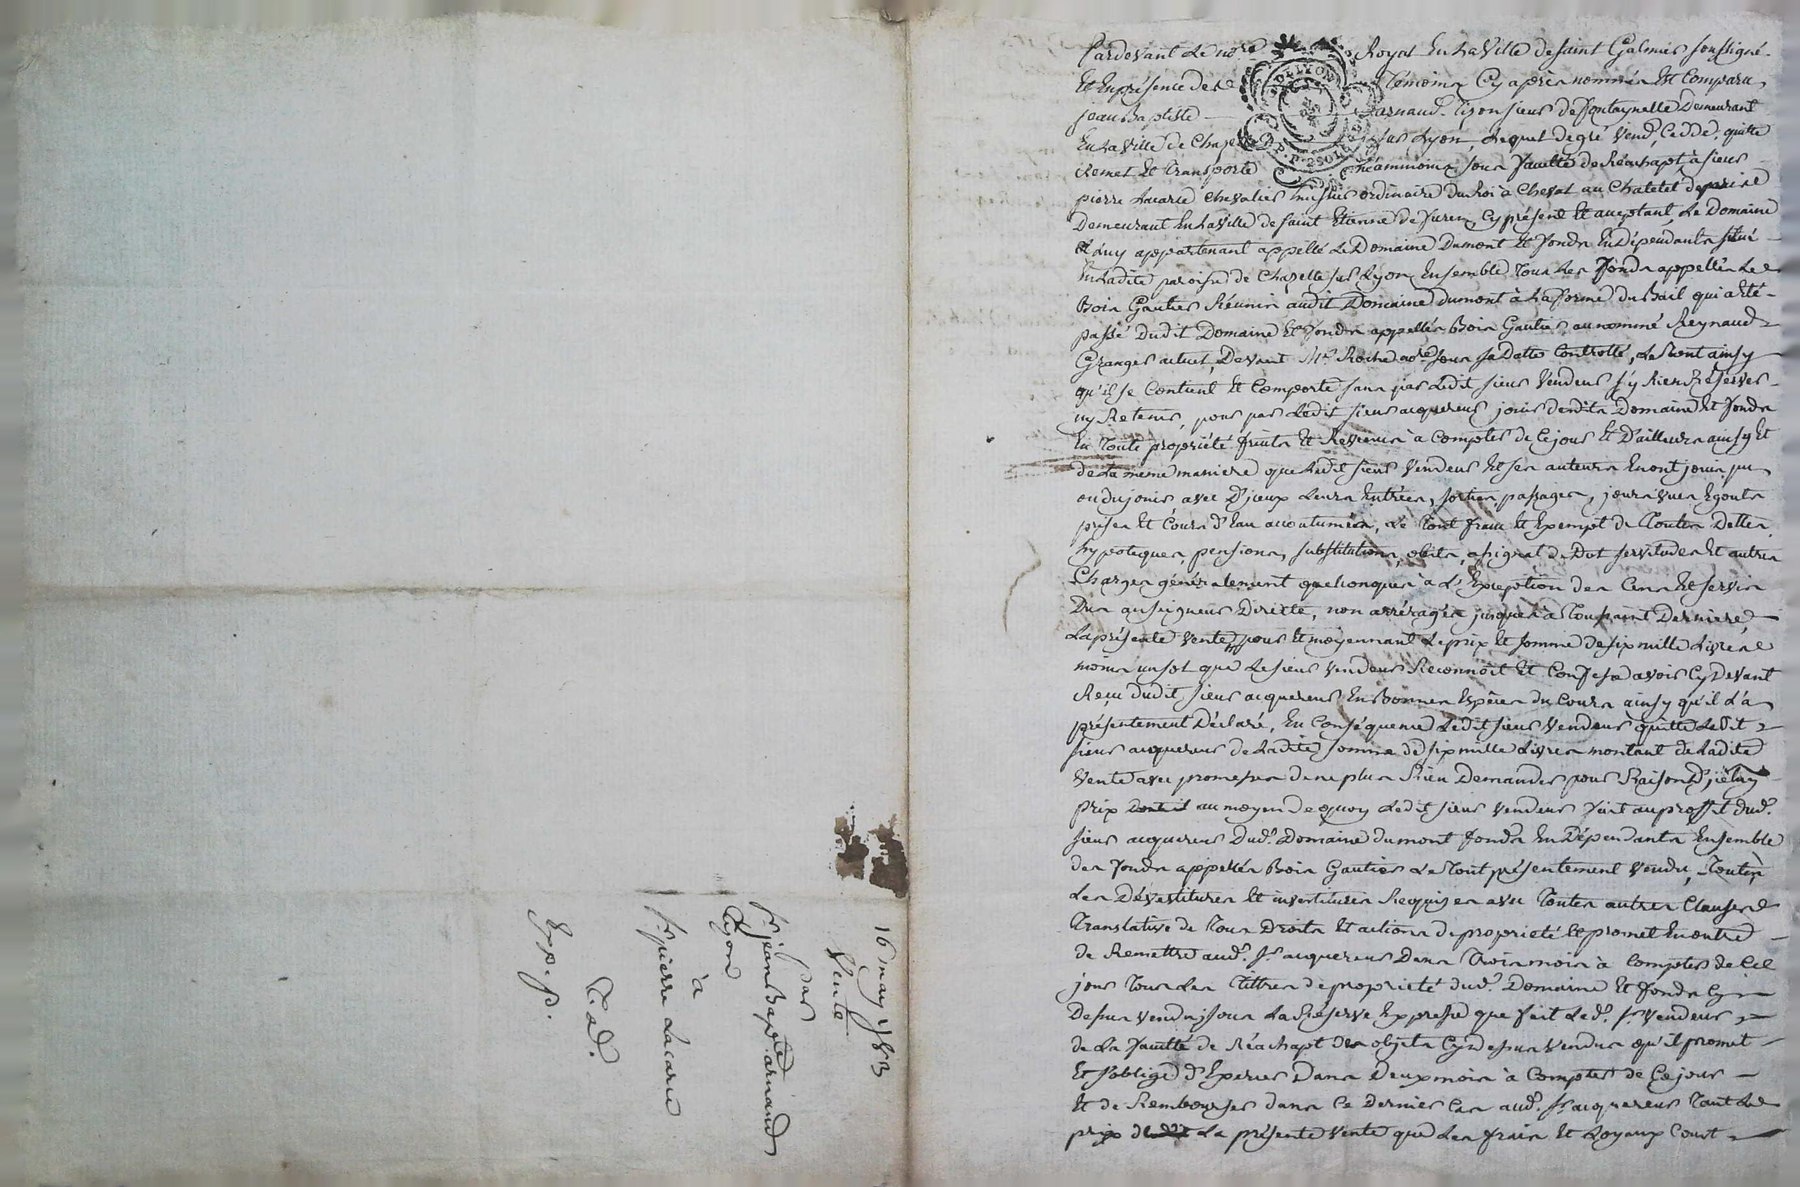 16 may 1783
Vente
par
Sr jean Bapte arnaud
Tizon
à
Sr pierre Lacarie
Exp. p.
Pardevant Le nore Royal En La Ville de saint Galmier soussigné
Et En présence des Témoins Cy après nommés Est Comparu
jean Baptiste Arnaud Tizon sieur de Fontaynelle Demeurant
En La Ville de Chapelle sur Lyon, Lequel de gré Vend, Cedde, quitte
Remet Et Transporte néammoins sous faculté de Réachapt, à sieur
pierre Lacarie Chevalier huissier ordinaire du Roi à Cheval au Chatelet de paris
Demeurant En La Ville de saint Etienne de furen Cy présent Et acceptant Le Domaine
à Luy appartenant appellé Le Domaine Dumont Et fonds En Dépendants situé
En Ladite paroisse de Chapelle sur Lyon Ensemble Tous Les fonds appellés Les
Bois Gautier Réunis audit Domaine Dumont à La forme du Bail qui a Eté
passé Dudit Domaine Et fonds appellés Bois Gautier au nommé Reynaud
Granger actuel, Devant Me Roche nore sous sa Datte Controllé, Le Tout ainsy
qu'il se Contient Et Comporte sans par Ledit sieur Vendeur s'y Rien Réserver
ny Retenir, pour par Ledit sieur acquereur jouir desdits Domaine Et fonds
En Toute propriété fruits Et Revenus à Compter de Ce jour Et D'ailleurs ainsy Et
de La même maniere que Ledit sieur Vendeur Et ses auteurs En ont joui pu
ou du jouir avec D'jceux Leurs Entrées, sorties passages, jours Vues Egouts
prises Et Cours d'Eau accoutumés, Le Tout franc Et Exempt de Toutes Dettes
hypoteques, pensions, substitutions, obits, assignat de Dot servitudes Et autres
Charges généralement quelconques à L'Exception des Cens Et servis
Dus au seigneur Directe, non arréragés jusques à Toussaint Derniere,
La présente Vente pour Et moyennant Le prix Et somme de six mille Livres
moins un sol que Le sieur Vendeur Reconnoît Et Confesse avoir Cy Devant
Reçu dudit sieur acquereur En Bonnes Espèces du Cours ainsy qu'il L'a
présentement Déclaré, En Conséquence Ledit sieur Vendeur quitte Ledit
sieur acquereur de Ladite somme de six mille Livres montant de Ladite
Vente avec promesse de ne plus Rien Demander pour Raison D'jcelluy
prix au moyen de quoy Ledit sieur Vendeur fait au proffit dud.
sieur acquereur Dud. Domaine dumont fonds En Dépendants Ensemble
des fonds appellés Bois Gautier Le Tout présentement Vendu, Toutes
Les Dévestitures Et investitures Requises avec Toutes autres Clauses
Translative de Tous Droits Et actions de propriété Et promet En outre
de Remettre aud. sr acquereur Dans Trois mois à Compter de Ce
jour Tous Les Tittres de propriété dud. Domaine Et fonds Cy
Dessus Vendus, sous La Réserve Expresse que fait Led. sr Vendeur
de La faculté de Réachapt des objets Cy dessus Vendus qu'il promet
Et s'oblige d'Exercer Dans Deux mois à Compter de Ce jour
Et de Rembourser dans Ce Dernier Cas aud. sr acquereur Tant Le
prix de La présente Vente que Les frais Et Loyaux Cout